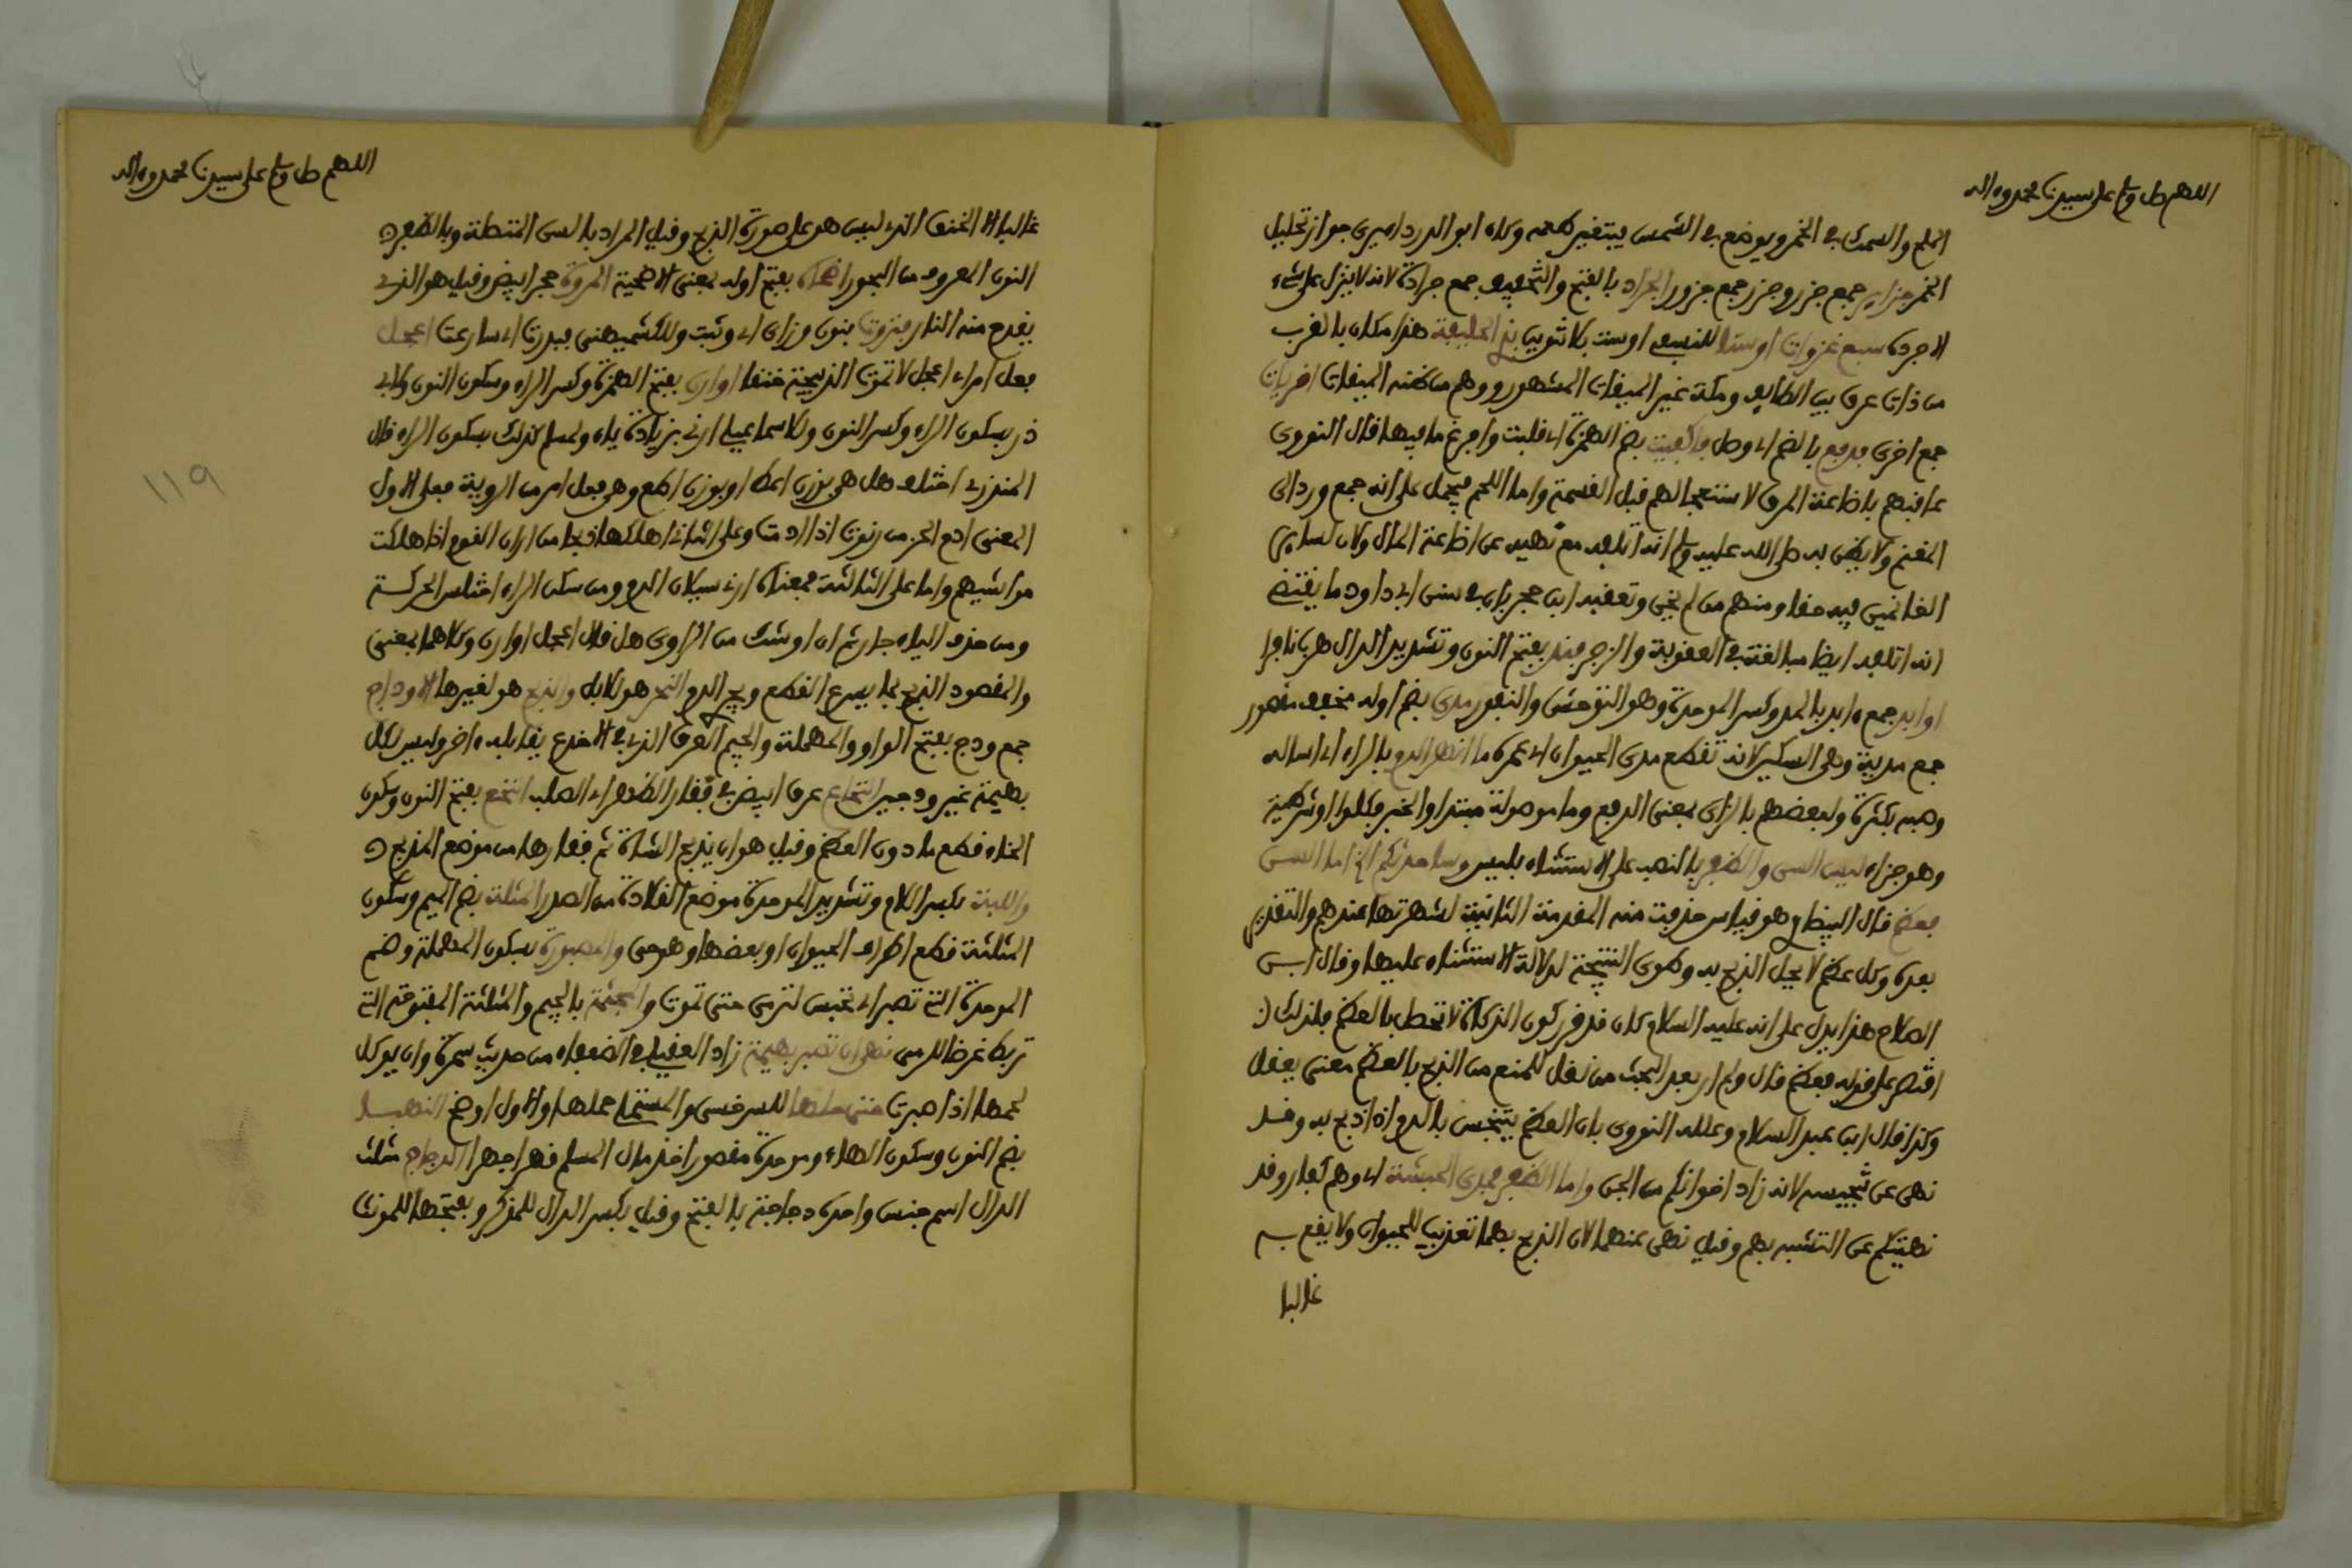 اللهم صل وسلم على سيدنا محمد وءاله
الملح والسمك في الخمر ويوضع في الشمس فيتغير طعمه وكان ابو الدرداء يرى جواز تحليل
الخمر جزاير جمع جزر وجزر جمع جزور الجراد بالفتح والتخفيف جمع جرادة لانه لا ينزل على شيء
الا جرده سبع غزوات او ستا للنسفي او ست بلا تنوين بذي الحليفة هذا مكان بالقرب
من ذات عرق بين الطايف ومكة غير الميقات المشهور ووهم من ظنه الميقات اخريات
جمع اخرى فدفع بالضم اي وصل فاكفيت بضم الهمزة اي قلبت وافرغ ما فيها قال النووي
عاقبهم باضاعة المرق لاستعجالهم قبل القسمة واما اللحم فيحمل على انه جمع ورد الى
المغنم ولا يظن به صلى الله عليه وسلم انه اتلفه مع نهيه عن اضاعة المال ولان لساير
الغانمين فيه حقا ومنهم من لم يجن وتعقبه ابن حجر بان في سنن ابي داود ما يقتضي
انه اتلفه ايضا مبالغة في العقوبة والزجر فند بفتح النون وتشديد الدال هربا نافرا
اوابد جمع ءابد بالمد وكسر الموحدة وهو التوحش والنفور مدى بضم اوله مخفف مقصور
جمع مدية وهي السكين لانه تقطع مدى الحيوان اي عمره ما انهر الدم بالراء اي اساله
وصبه بكثرة ولبعضهم بالزاي بمعنى الدفع وما موصولة مبتدا والخبر فكلوا او شرطية
وهو جزاء ليس السن والظفر بالنصب على الاستثناء بليس وساحدثكم الخ اما السن
فعظم قال البيضاوي هو قياس حذفت منه المقدمة الثانية لشهرتها عندهم والتقدير
بعده وكل عظم لا يحل الذبح به وطوى النتيجة لدلالة الاستثناء عليها وقال ابن
الصلاح هذا يدل على انه عليه السلام كان قد قرر كون الذكاة لا تحصل بالعظم فلذلك
اقتصر على قوله فعظم قال ولم ار بعد البحث من نقل للمنع من الذبح بالعظم معنى يعقل
وكذا قال ابن عبد السلام وعلله النووي بان العظم يتنجس بالدم اذا ذبح به وقد
نهى عن تنجيسه لانه زاد اخوانكم من الجن واما الظفر فمدى الحبشة اي وهم كفار وقد
نهيتكم عن التشبه بهم وقيل نهى عنهما لان الذبح بهما تعذيب للحيوان ولا يقع به
غالبا
اللهم صل وسلم على سيدنا محمد وءاله
غالبا الا الخنق الذي ليس هو على صورة الذبح وقيل المراد بالسن المتصلة وبالظفر
النون المعروف من البخور اضحاة بفتح اوله بمعنى الاضحية المروة حجر ابيض وقيل هو الذي
يقدح منه النار فنزوت بنون وزاي اي وثبت وللكشميهني فبدرت اي سارعت اعجل
فعل امر اي اعجل لا تموت الذبيحة خنقا او ارن بفتح الهمزة وكسر الراء وسكون النون ولابي
ذر بسكون الراء وكسر النون وللاسماعيلي ارني بزيادة ياء ولمسلم كذلك بسكون الراء قال
المنذري اختلف هل هو بوزن اعط او بوزن اطع وهو فعل امر من الروية فعلى الاول
المعنى ادم الحز من رنوت اذا ادمت وعلى الثاني اهلكها ذبحا من اران القوم اذا هلكت
مواشيهم واما على الثالثة فمعناه ارني سيلان الدم ومن سكن الراء اختلس الحركة
ومن حذف الياء جاز ثم ان او شك من الراوي هل قال اعجل او ارن وكلاهما بمعنى
والمقصود الذبح بما يسرع القطع ويجري الدم النحر هو للابل والذبح هو لغيرها الاوداج
جمع ودج بفتح الواو والمهملة والجيم العرق الذي في الاخدع يقابله ءاخر وليس لكل
بهيمة غير ودجين النخاع عرق ابيض في فقار الظهر اي الصلب النخع بفتح النون وسكون
الخاء قطع ما دون العظم وقيل هو ان يذبح الشاة ثم قفارها من موضع المذبح
واللبة بكسر اللام وتشديد الموحدة موضع القلادة من الصدر المثلة بضم الميم وسكون
المثلثة قطع اطراف الحيوان او بعضها وهو حي والمصبورة بسكون المهملة وضم
الموحدة التي تصبر اي تحبس لترمى حتى تموت والمجثمة بالجيم والمثلثة المفتوحة التي
تربط غرضا للرمي نهى ان تصبر بهيمة زاد العقيلي في الضعفاء من حديث سمرة وان يوكل
لحمها اذا صبرت حتى حلها للسرخسي والمستملي حملها والاول اوضح النهبى
بضم النون وسكون الهاء وموحدة مقصور اخذ مال المسلم قهرا جهرا الدجاج مثلث
الدال اسم جنس واحده دجاجة بالفتح وقيل بكسر الدال للمذكر وبفتحها للمونث
119